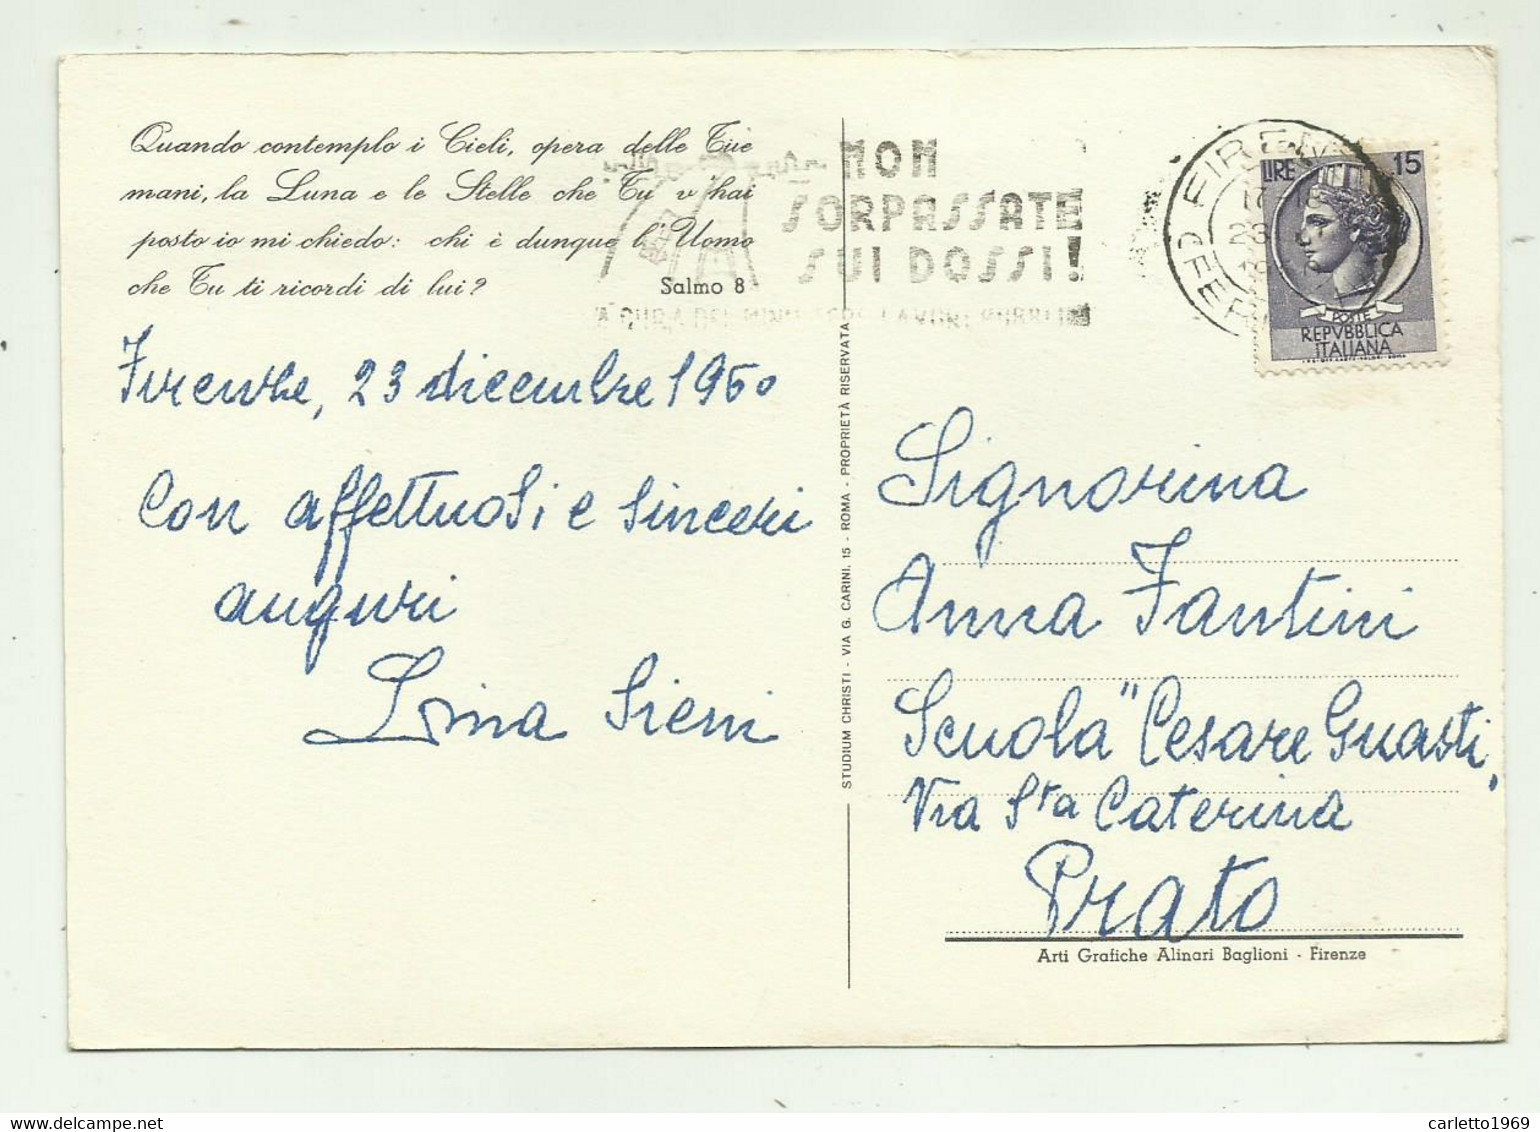 Quando contemplo i Cieli, opera delle Tue
mani, la Luna e le Stelle che Tu v'hai
posto io mi chiedo: chi è dunque l'Uomo
che Tu ti ricordi di lui?
Salmo 8
NON
SORPASSATE
SUI DOSSI!
LIRE 15
POSTE
REPVBBLICA
ITALIANA
Firenze, 23 dicembre 1960
Con affettuosi e sinceri
auguri
Lina Sieni
STUDIUM CHRISTI - VIA G. CARINI, 15 - ROMA - PROPRIETÀ RISERVATA
Signorina
Anna Fantini
Scuola "Cesare Guasti"
Via S.ta Caterina
Prato
Arti Grafiche Alinari Baglioni - Firenze
carletto1969